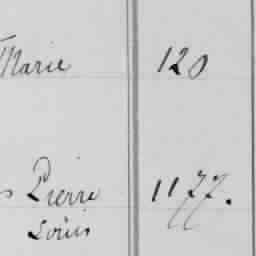 Marie 120
s Pierre 1177.
Louis